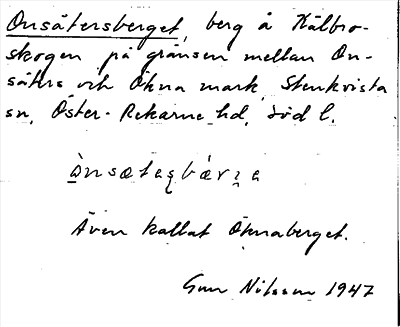 Onsätersberget, berg å Kälbro-
skogen på gränsen mellan On-
säters och Ökna mark, Stenkvista
sn, Öster-Rekarne hd, Söd l.
Även kallat Öknaberget.
Gun Nilsson 1947